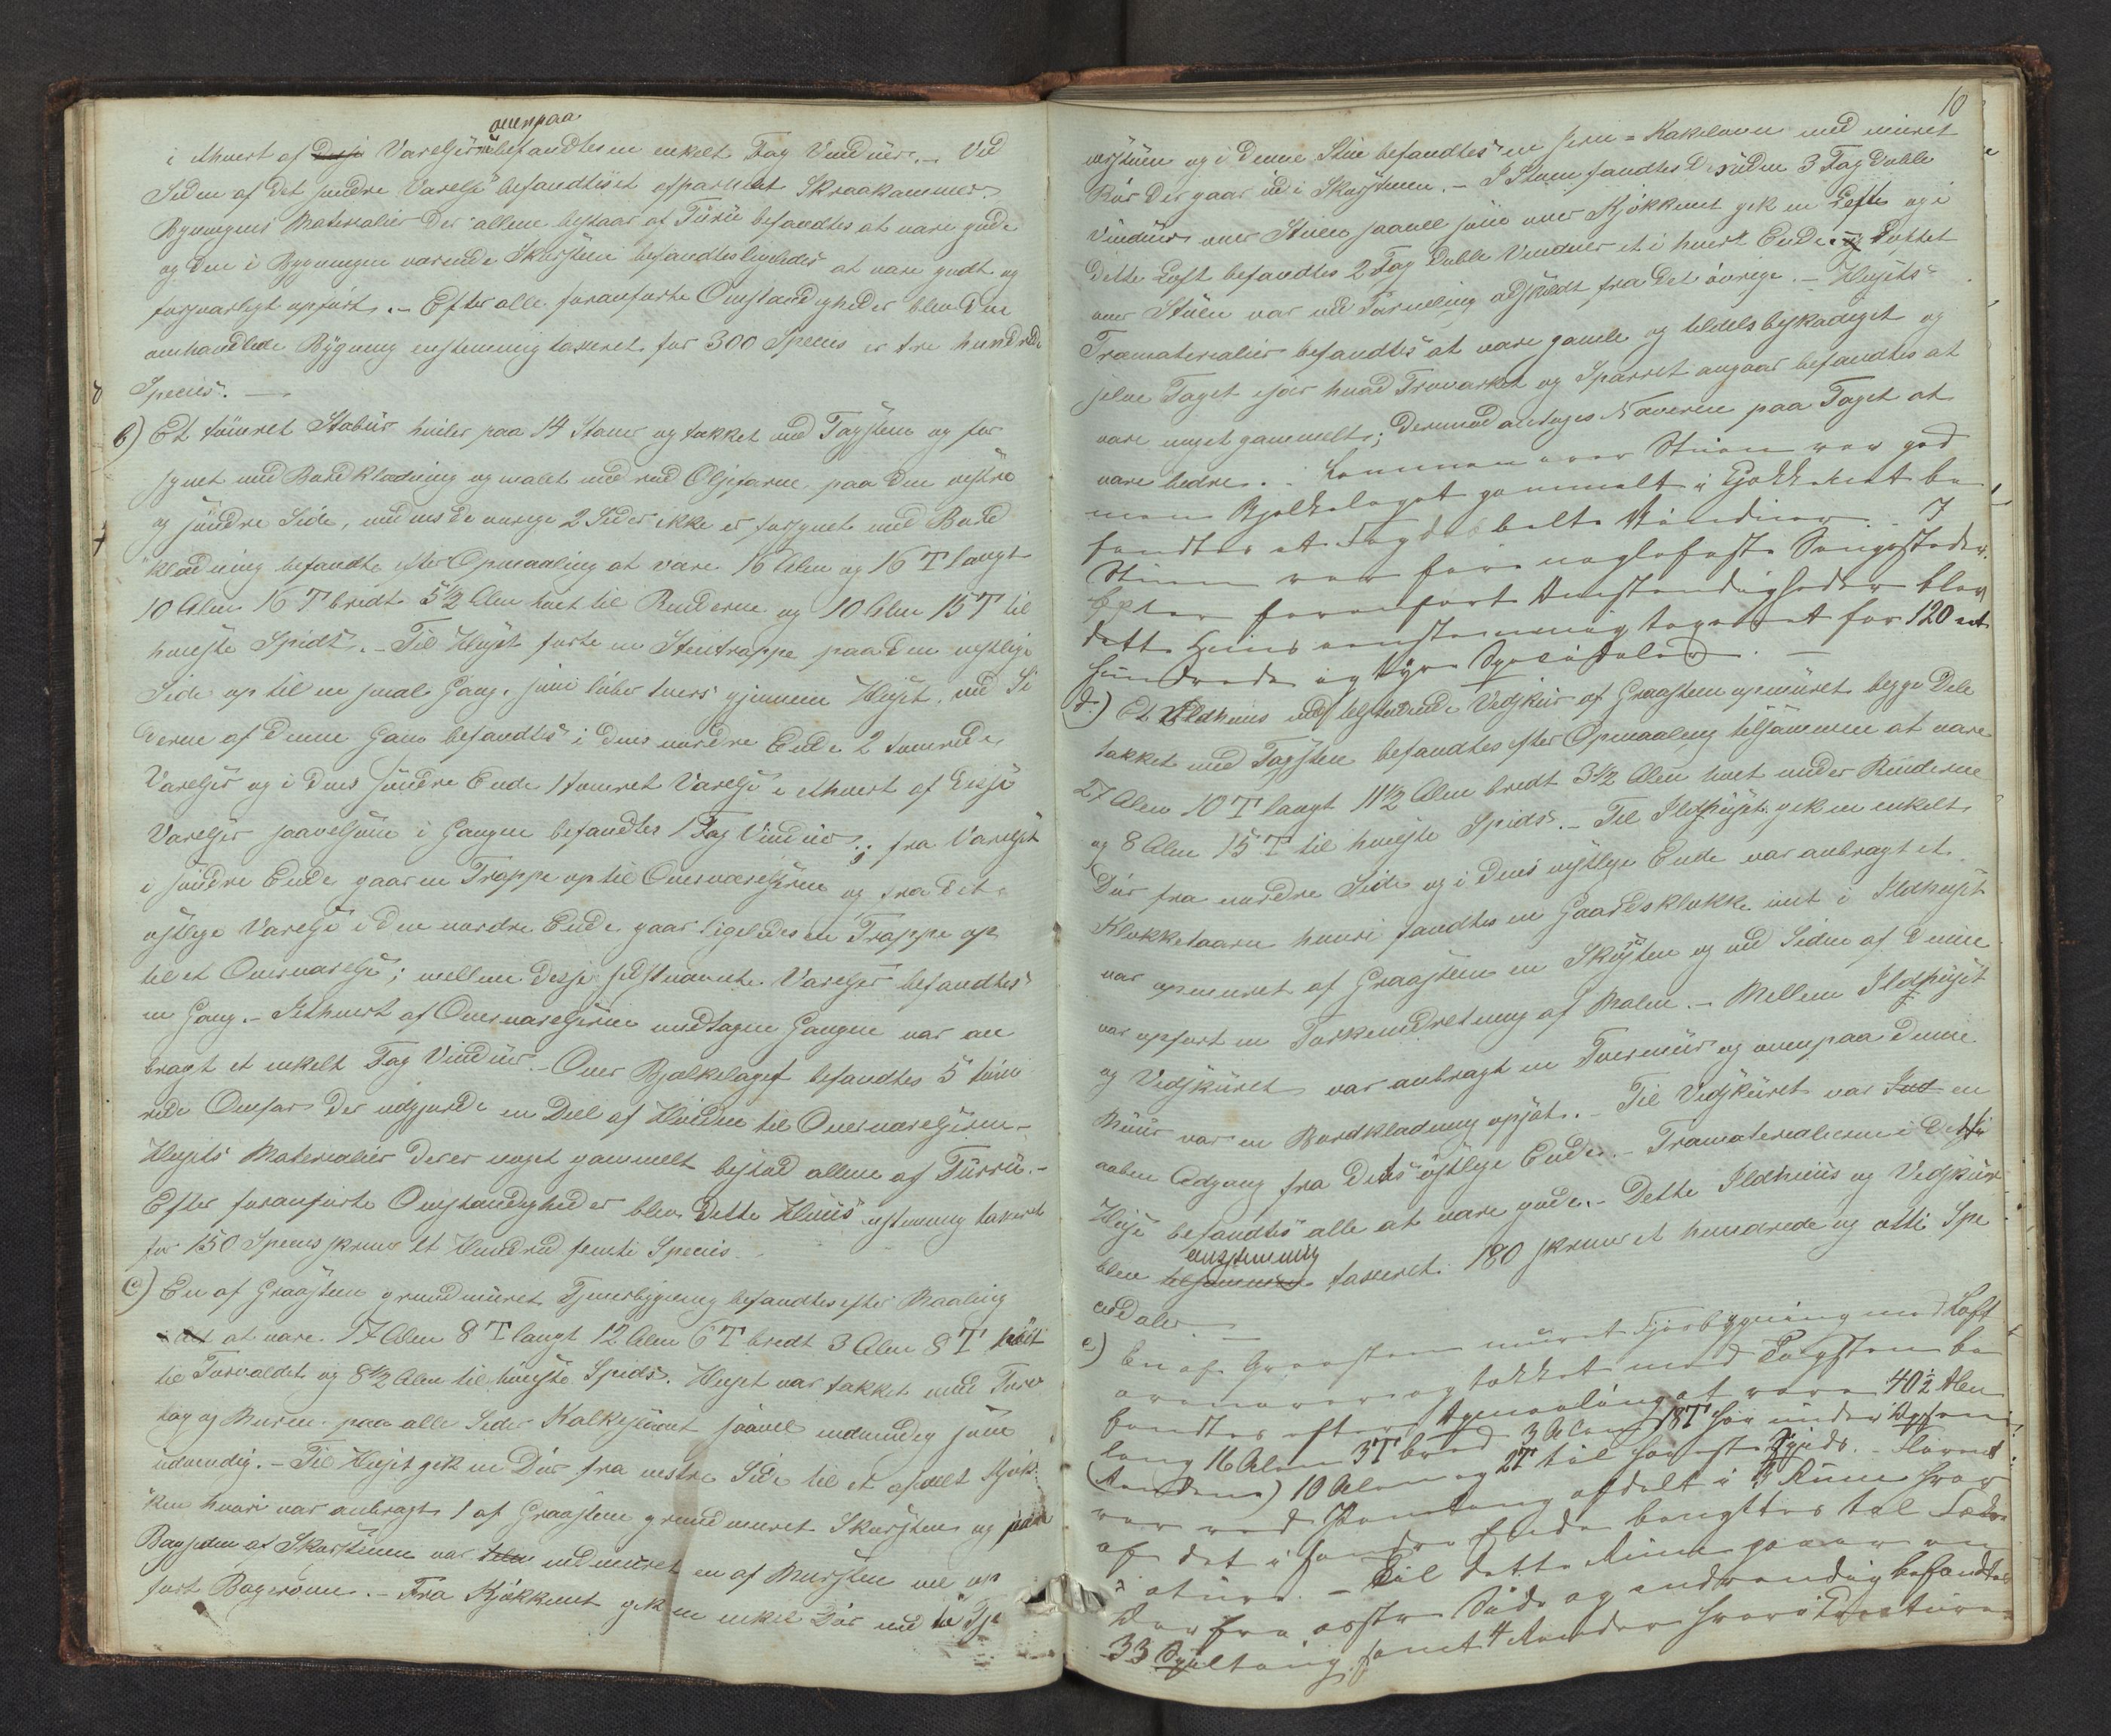 ovenpaa
i ethvert af Disse Værelser befandtes en enkelt Fag Vinduer. – Ved
Siden af det søndre Værelse befandtes et afpanelet Skraakammer.
Bygningens Materialier der allene bestaar af Fürü befandtes at være gode
og den i Bygningen værende Skorsteen befandtes ligeledes at være godt og
forsvarligt opført. – Efter alle foranførte Omstændigheder blev den
omhandlede Bygning enstemmig taxeret for 300 Species er tre hundrede
Species. —
b) Et tömret Stabür hviler paa 14 Staver og tækket med Tagsteen og for
synet med Bordklædning og malet med rød Oljefarve paa den vestre
og söndre Side, medens de øvrige 2 Sider ikke er forsynet med Bord
klædning befandtes efter Opmaaling at være 16 Alen og 16 T langt
10 Alen 16 T bredt 5½ Alen høit til Rudderne og 10 Alen 15 T til
høieste Spids. – Til Huset førte en Steentrappe paa den vestlige
Side op til en smal Gang, som løber tvers gjennem Huset, ved Si
derne af denne Gang befandtes i dens nordre Ende 2 tømrede
Værelser og i dens søndre Ende 1 tømret Værelse i ethvert af disse
Værelser saavelsom i Gangen befandtes 1 Fag Vinduer; fra Værelset
i søndre Ende gaar en Trappe op til Oververelserne og fra det
østlige Værelse i den nordre Ende gaar ligeledes en Trappe op
til et Oververelse; mellem disse sidstnævnte Værelser befandtes
en Gang. – I ethvert af Oververelserne undtagen Gangen var an
bragt et enkelt Fag Vinduer. – Over Bjælkelaget befandtes 5 tøm
rede Omfar der udgjorde en Deel af Høiden til Oververelserne –
Husets Materialier der er noget gammelt bestod allene af Fürrü. –
Efter foranførte Omstændigheder blev dette Hüüs enstemmig taxeret
for 150 Species skriver Et Hundred femti Species
c) En af Graasteen grundmüret Fjøsbygning befandtes efter Maaling
at være 17 Alen 8 T langt 12 Alen 6 T bredt 3 Alen 8 T høit
til Torvaldet og 8½ Alen til høieste Spids. Huset var tækket med Torv
tag og Murene paa alle Sider Kalkspækket saavel indvendig som
udvendig. – Til Huset gik en Dør fra vestre Side til et afdeelt Kjøk
ken hvori var anbragt 1 af Graasteen grundmuret Skorsteen og paa
Bagsiden af Skorstenen var indmuret en af Mursteen vel op
ført Bagerovn. – Fra Kjøkkenet gik en enkel Dør ind til Tje
10
nerstuen og i denne Stue befandtes en Jern = Kakelovn med muret
Rør der gaar ud i Skorstenen. – I Stuen fandtes Desuden 3 Fag Doble
Vinduer over Stuen saavel som over Kjøkkenet gik en Loft og i
dette Loft befandtes 2 Fag Doble Vinduer et i hvert Ende. Loftet
over Stüen var ved Panneling adskildt fra det øvrige. – Husets
Træmaterialier befandtes at være gamle og tildels beskadiget og
selve Taget især hvad Troværket og Sparret angaar befandtes at
være meget gammelt; derimod antages Næveren paa Taget at
være bedre. Lemmen over Stüen var god
men Bjelkelaget gammelt i Kjøkkenet be
fandtes et Fag dobbelte Vinduer. – I
Stuen var fire naglefaste Sengesteder.
Efter foranført Omstændigheder blev
dette Hüus eenstemmig taxeret for 120 et
hundrede og tyve Speciedaler. —
d) Et Ildhuus med tilstødende Vedskür af Graasteen opmüret begge Dele
tækket med Tagsteen befandtes efter Opmaaling tilsammen at være
27 Alen 10 T langt 11½ Alen bredt 3½ Alen høit under Rudderne
og 8 Alen 15 T til høieste Spids. – Til Ildhuset gik en enkelt
Dør fra nordre Side og i dens vestlige Ende var anbragt et
Klokketaarn hvori fandtes en Gaardsklokke int i Ildhuset
var opmuret af Graasteen en Skorsteen og ved Siden af denne
var opført en Tørkeindretning af Malm. – Mellem Ildhuset
og Vedskuret var anbragt en Tvermüür og ovenpaa denne
Müür var en Bordklædning opsat. – Til Vedskuret var Ind en
aaben Adgang fra dets østlige Ende. – Træmaterialierne i Dette
Huse befandtes alle at være gode. – Dette Ildhuus og Vedskür
enstemmig
blev tilsammen taxeret 180 skriver et hundrede og otti Spe
ciedaler —
e) En af Graasteen müret Fjøsbygning med Loft
ovenover og tækket med Tagsteen be
fandtes efter Opmaaling at være 40½ Alen
lang 16 Alen 3T bred 3 Alen 18T høi under
10 Alen og 2T til høieste Spids. – Fløren
var ved Panneling afdelt i 3 Rum hvor
af det i søndre Ende benyttes til
– Til dette Rum gaaer en
Dør fra østre Side og indvendig befandtes
33 samt 4 hvori